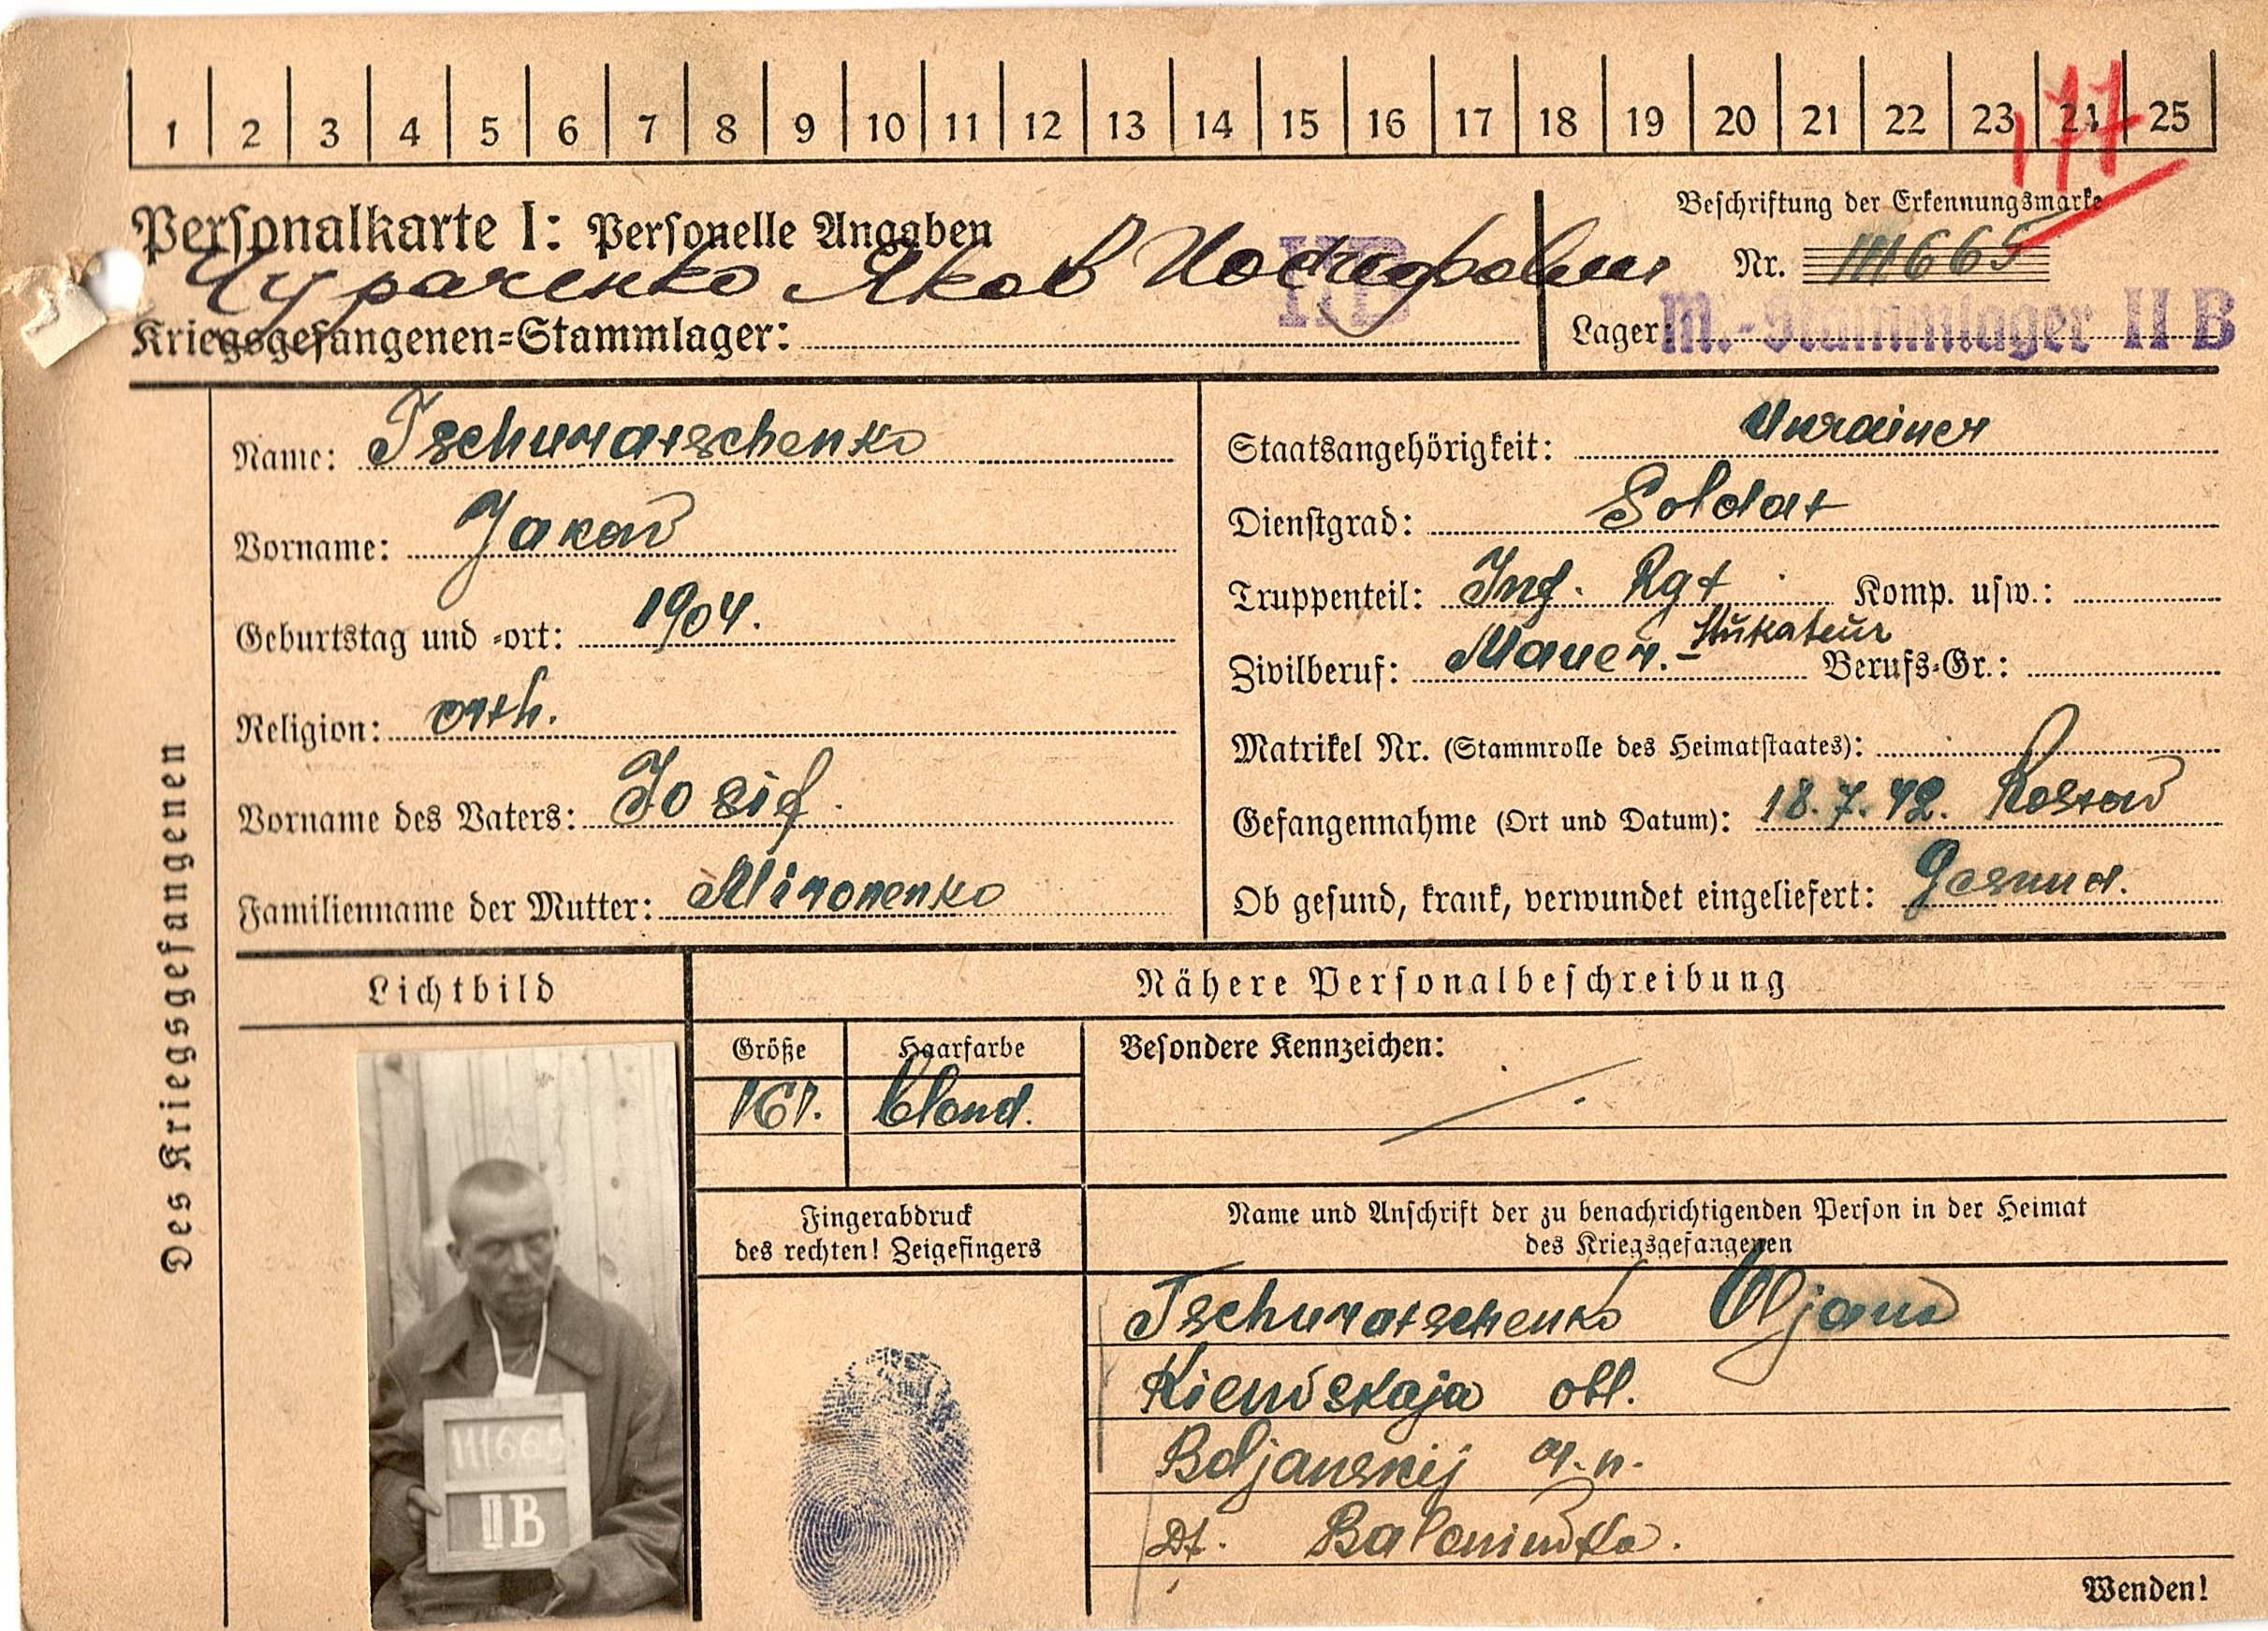 1 2 3 4 5 6 7 8 9 10 11 12 13 14 15 16 17 18 19 20 21 22 23 24 25
177
Personalkarte I: Personelle Angaben
Beschriftung der Erkennungsmarke
Чураченко Яков
Nr. 111665
II B
Kriegsgefangenen=Stammlager:
Lager: M.-Stammlager II B
Des Kriegsgefangenen
Name: Tschuratschenko
Vorname: Jakow
Geburtstag und -ort: 1904.
Religion: orth.
Vorname des Vaters: Josif.
Familienname der Mutter: Mironenko
Staatsangehörigkeit: Ukrainer
Dienstgrad: Soldat
Truppenteil: Inf. Rgt Komp. usw.:
Zivilberuf: Mauer. - Stukateur Berufs=Gr.:
Matrikel Nr. (Stammrolle des Heimatstaates):
Gefangennahme (Ort und Datum): 18.7.42. Rostow
Ob gesund, krank, verwundet eingeliefert: Gesund.
Lichtbild
Nähere Personalbeschreibung
Größe Haarfarbe Besondere Kennzeichen:
161. blond.
Fingerabdruck
des rechten! Zeigefingers
Name und Anschrift der zu benachrichtigenden Person in der Heimat
des Kriegsgefangenen
Tschuratschenko Uljana
Kiewskaja obl.
Boljanskij r.n.
Df.
111665
II B
Wenden!